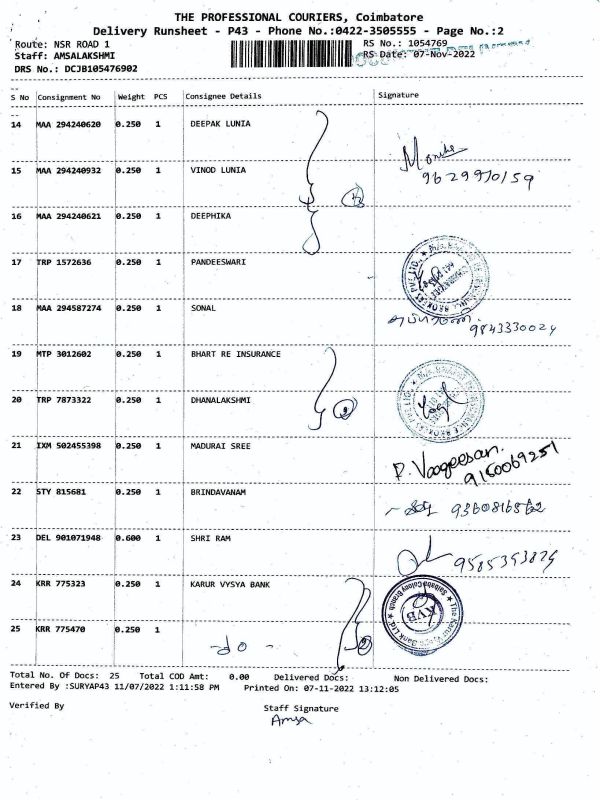 THE PROFESSIONAL COURIERS, Coimbatore
Delivery Runsheet - P43 - Phone No.:0422-3505555 - Page No.:2
Route: NSR ROAD 1 RS No.: 1054769
Staff: AMSALAKSHMI RS Date: 07-Nov-2022
DRS No.: DCJB105476902
S No Consignment No Weight PCS Consignee Details Signature
14 MAA 294240620 0.250 1 DEEPAK LUNIA
15 MAA 294240932 0.250 1 VINOD LUNIA
16 MAA 294240621 0.250 1 DEEPHIKA
17 TRP 1572636 0.250 1 PANDEESWARI
18 MAA 294587274 0.250 1 SONAL
9843330024
19 MTP 3012602 0.250 1 BHART RE INSURANCE
20 TRP 7873322 0.250 1 DHANALAKSHMI 2
21 IXM 502455398 0.250 1 MADURAI SREE
P. Vaageesan.
9150069251
22 STY 815681 0.250 1 BRINDAVANAM
23 DEL 901071948 0.600 1 SHRI RAM
24 KRR 775323 0.250 1 KARUR VYSYA BANK
KVB
25 KRR 775470 0.250 1
-do- 2
Total No. Of Docs: 25 Total COD Amt: 0.00 Delivered Docs: Non Delivered Docs:
Entered By :SURYAP43 11/07/2022 1:11:58 PM Printed On: 07-11-2022 13:12:05
Verified By Staff Signature
Amsa